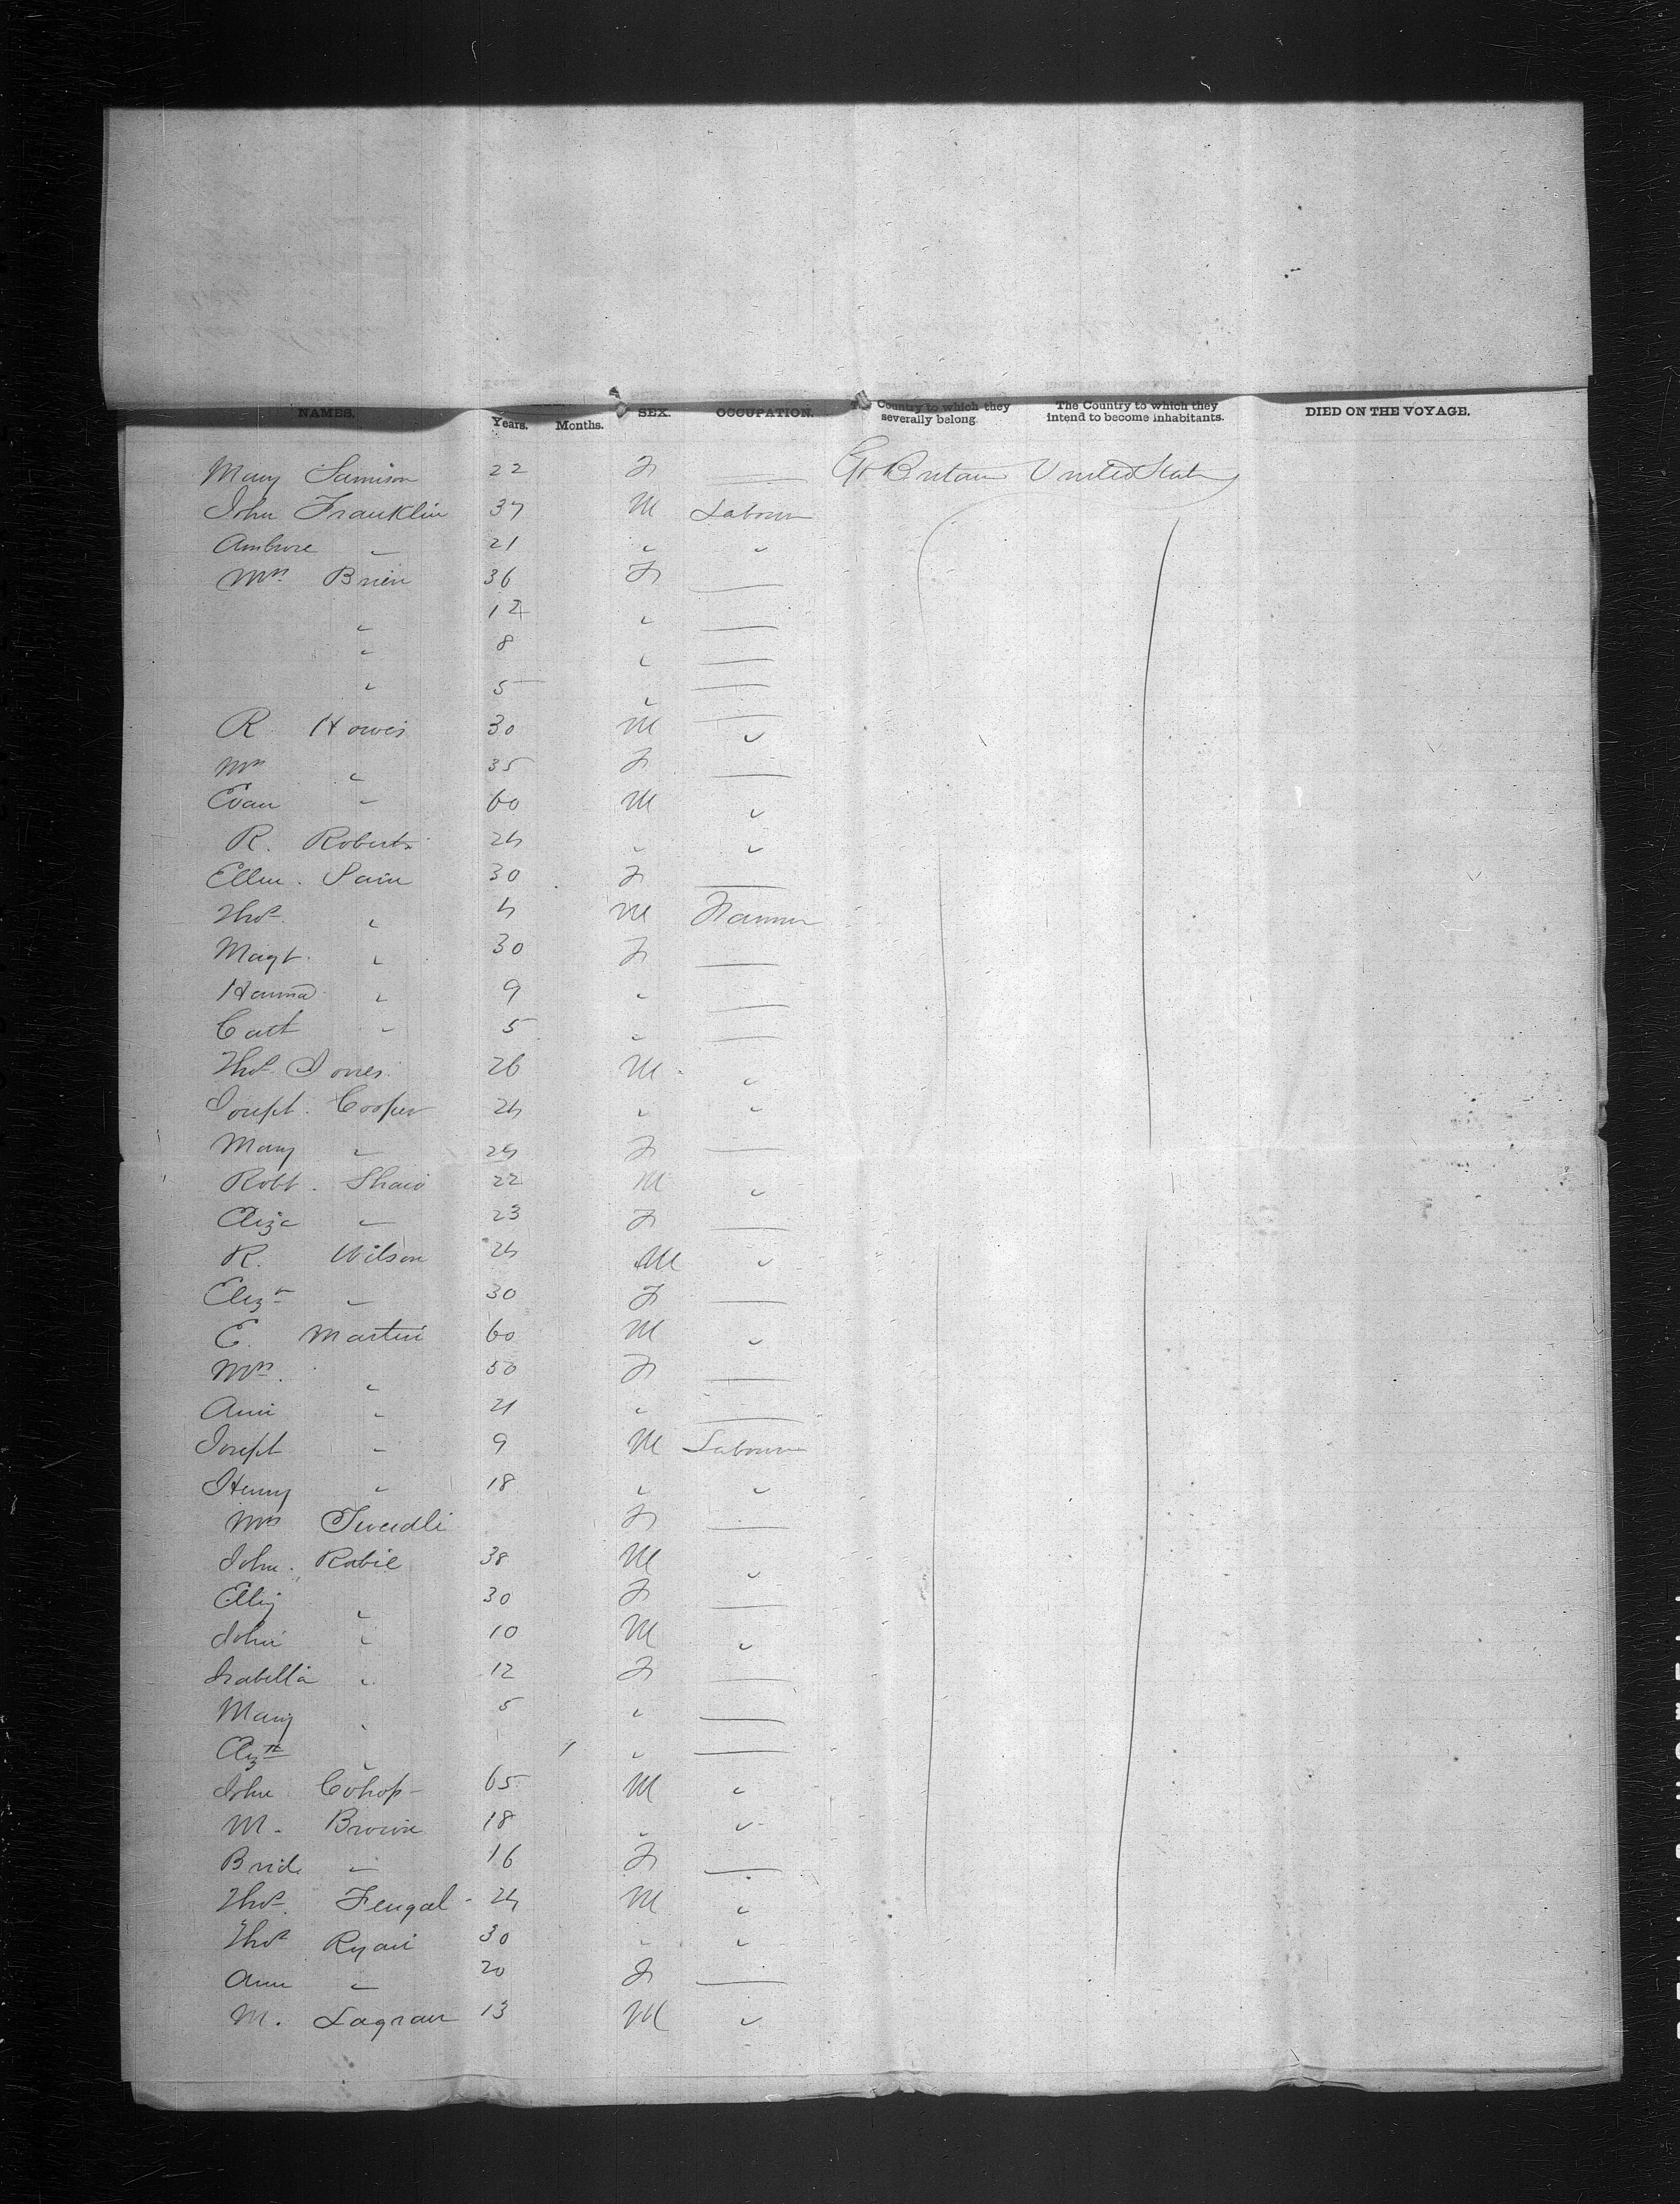 NAMES. Years. Months. SEX. OCCUPATION. Country to which they severally belong. The Country to which they intend to become inhabitants. DIED ON THE VOYAGE.
Mary 22 F — Gt Britain United States
John Franklin 37 M Labourer
Ambrose " 21 " "
Mrs Brien 36 F —
" 12 " —
" 8 " —
" 5 " —
R Howes 30 M "
Mrs " 35 F —
Evan " 60 M "
R. Roberts 24 " "
Ellen 30 F —
Thos " 4 M Farmer
Magt. " 30 F —
Hanna " 9 " —
Cath " 5 " —
Thos Jones 26 M "
Joseph Cooper 24 " "
Mary " 24 F —
Robt. Shaw 22 M "
Eliza " 23 F —
R. Wilson 24 M "
Elizth " 30 F —
E. Martin 60 M "
Mrs. " 50 F —
Ann " 21 " —
Joseph " 9 M Labourer
Henry " 18 " "
Mrs Tweedli F —
John Rabie 38 M "
Eliz " 30 F —
John " 10 M "
Isabella " 12 F —
Mary " 5 " —
Elizth " 1 " —
John Cohop 65 M "
M. Brown 18 " "
Bridt " 16 F —
Thos. Fengal 24 M "
Thos Ryan 30 " "
Ann " 20 F —
M. Lagran 13 M "